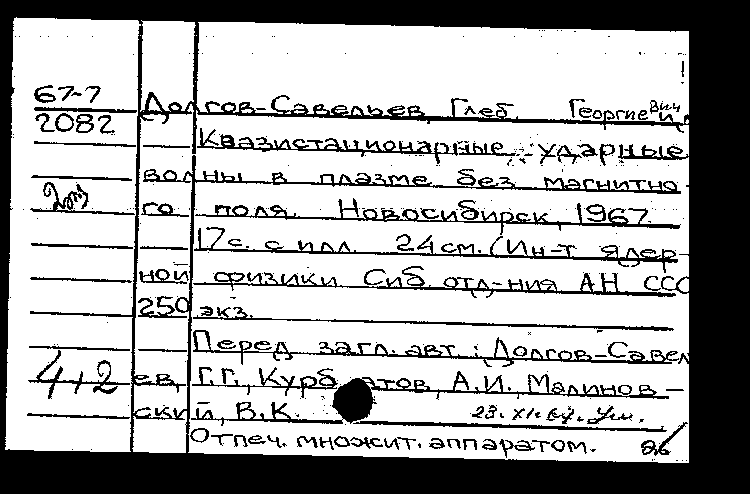 67-7 Долгов-Савельев, Глеб Георгиевич
2082 Квазистационарные ударные
волны в плазме без магнитно-
го поля. Новосибирск, 1967.
17 с. с илл. 24 см. (Ин-т ядер-
ной физики Сиб. отд-ния АН ССС
250 экз.
Перед загл. авт.: Долгов-Савел
4+2 ев, Г.Г., Курбатов, А.И., Малинов-
ский, В.К. 23.XI.67.
Отпеч. множит. аппаратом.